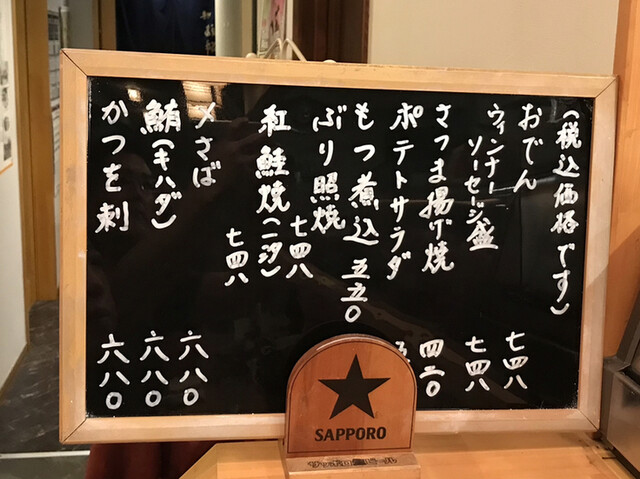 (税込価格です)
おでん 七四八
ウィンナー
ソーセージ盛 七四八
さつま揚げ焼 四二〇
ポテトサラダ 五
もつ煮込 五五〇
ぶり照焼 七四八
紅鮭焼(二汐) 七四八
〆さば 六八〇
鮪(キハダ) 六八〇
かつを刺 六八〇
SAPPORO